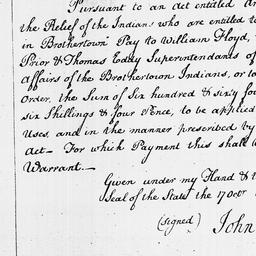 Pursuant to an act entitled an
the Relief of the Indians who are entitled to
in Brothertown Pay to William Floyd,
Prior & Thomas Eddy Superintendants of
Affairs of the Brothertown Indians, or to
Order, the Sum of Six hundred & sixty fou
six Shillings & four Pence, to be applied
Uses, and in the manner prescribed by
Act – For which Payment this shall
Warrant. –
Given under my Hand & t
Seal of the State the 17 Octr
(signed) John